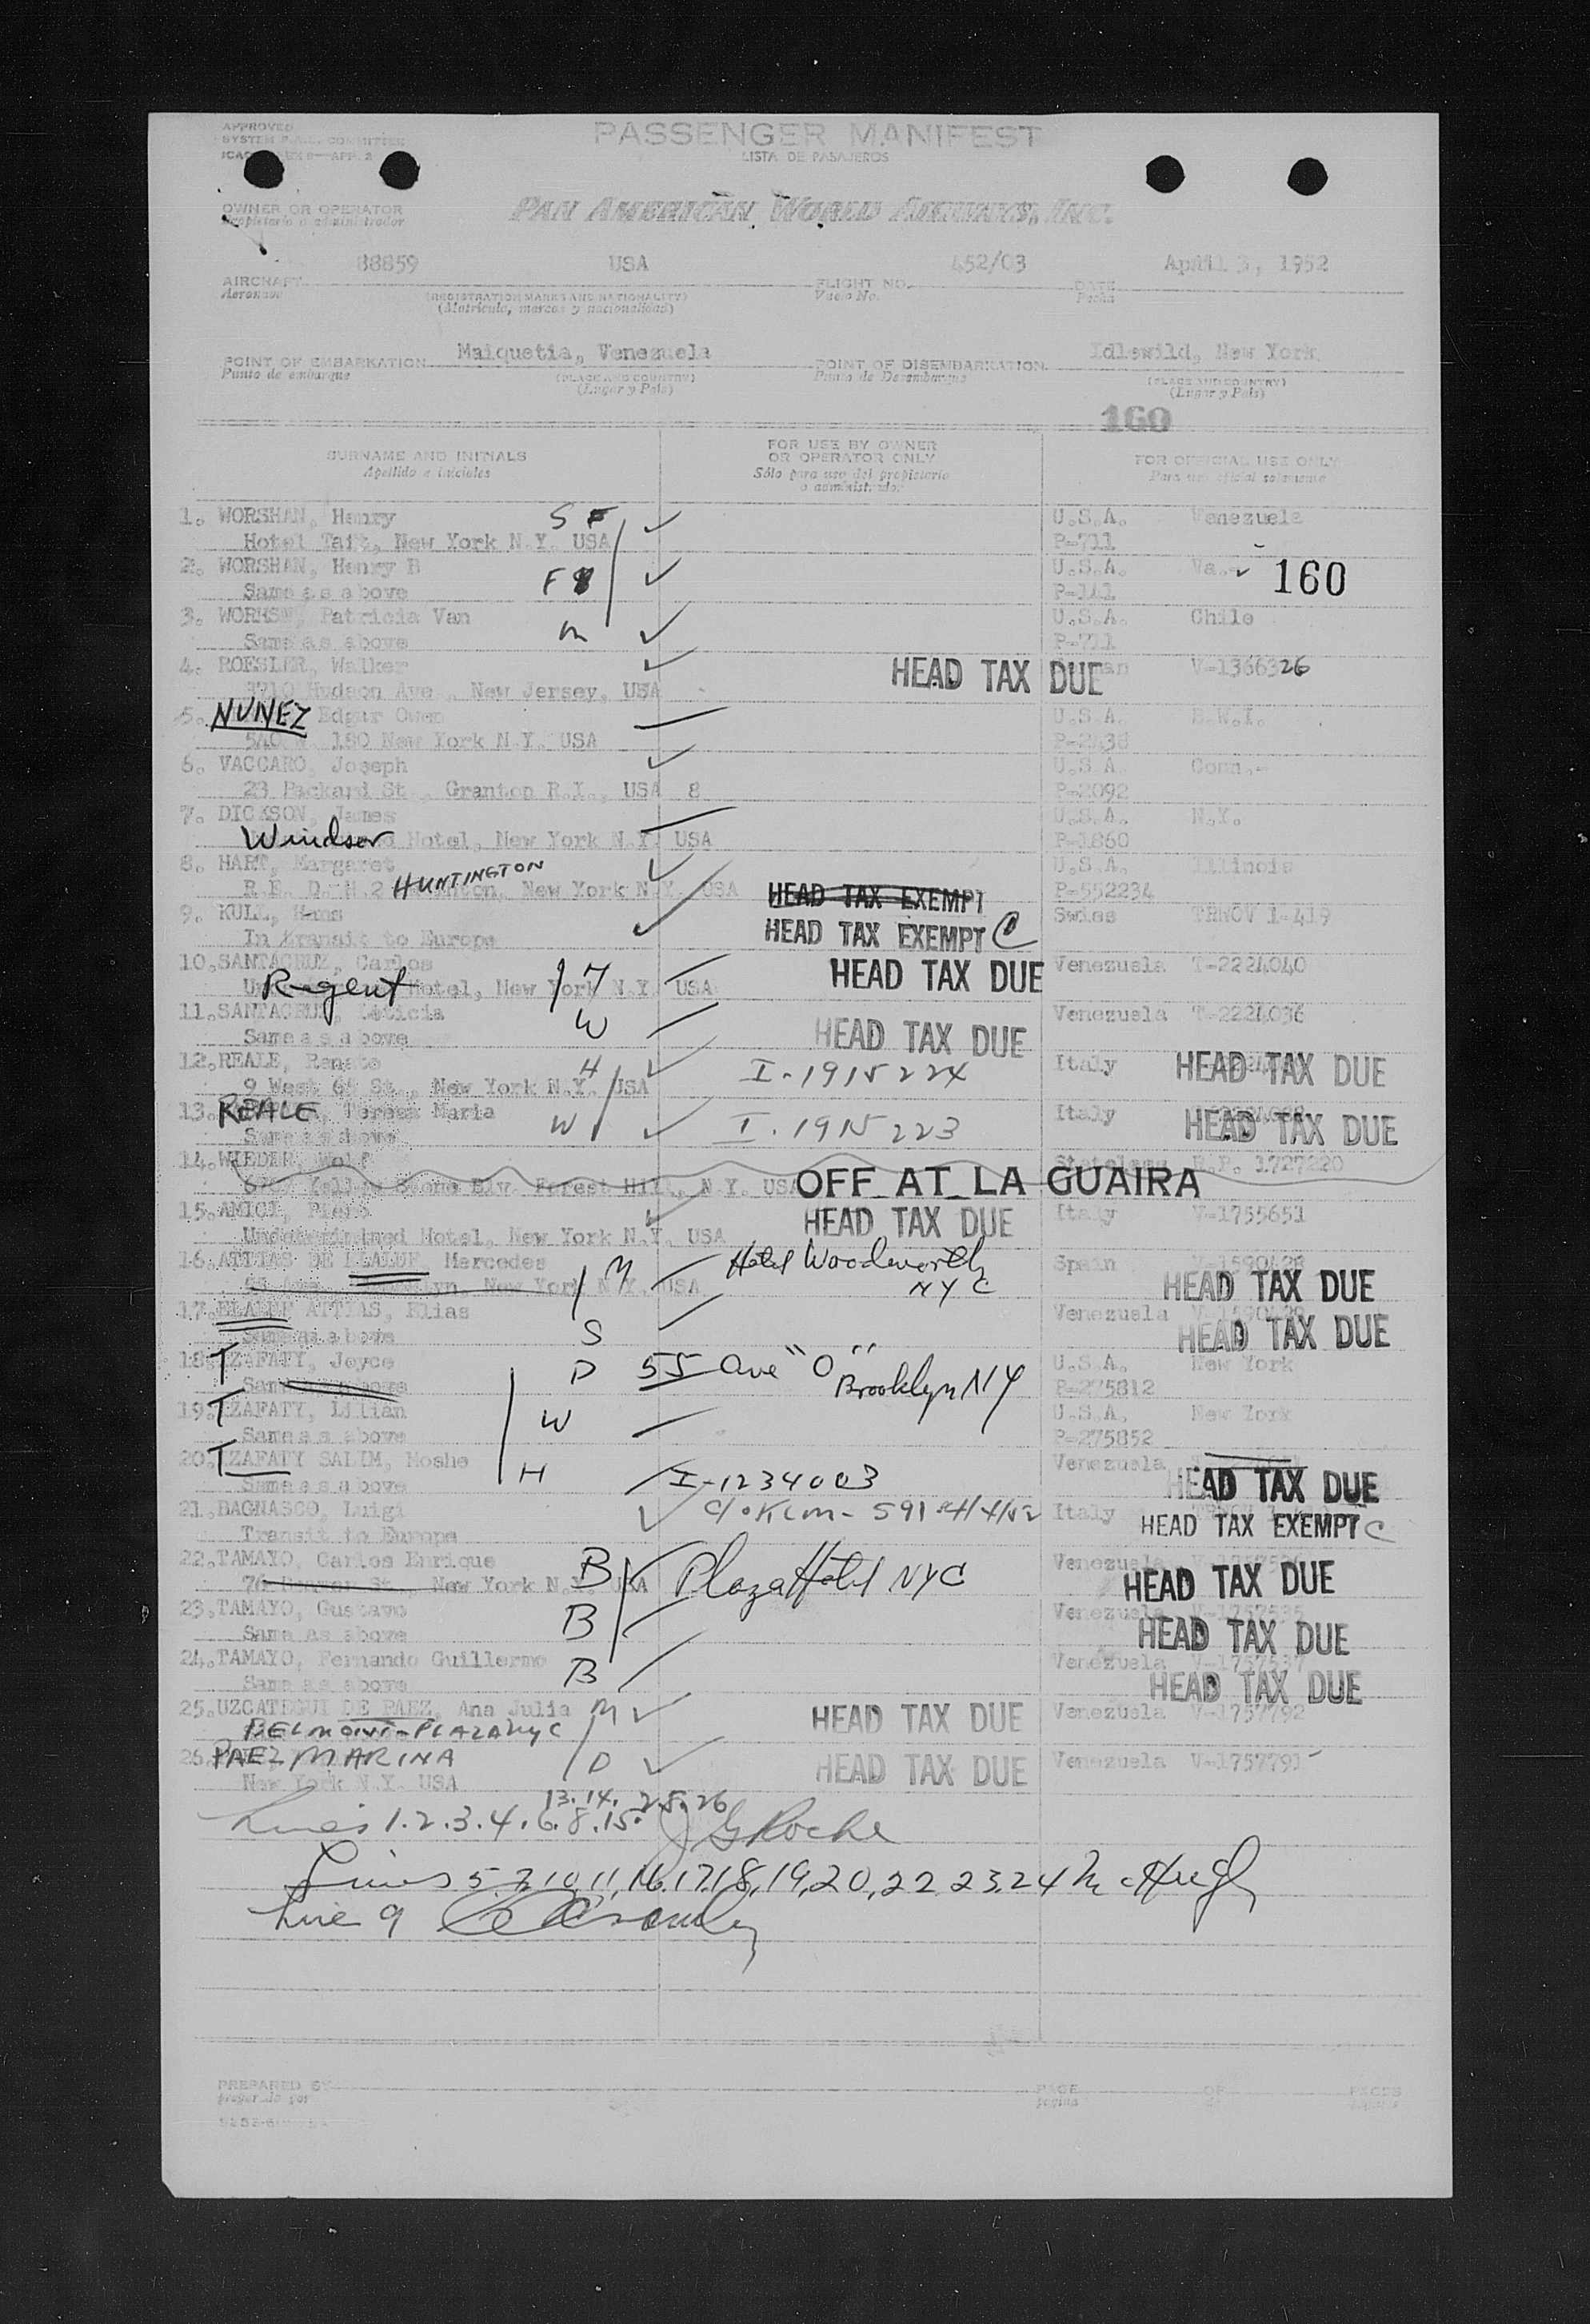 APPROVED
PASSENGER MANIFEST
LISTA DE PASAJEROS
OWNER OR OPERATOR
Propietario o administrador
PAN AMERICAN WORLD AIRWAYS, INC.
88859 USA 452/03 April 3, 1952
AIRCRAFT (REGISTRATION MARKS AND NATIONALITY) FLIGHT NO. DATE
Aeronave (Matricula, marcas y nacionalidad) Vuelo No. Fecha
Maiquetia, Venezuela Idlewild, New York
POINT OF EMBARKATION (PLACE AND COUNTRY) POINT OF DISEMBARKATION (PLACE AND COUNTRY)
Punto de embarque (Lugar y Pais) Punto de Desembarque (Lugar y Pais)
160
SURNAME AND INITIALS FOR USE BY OWNER OR OPERATOR ONLY FOR OFFICIAL USE ONLY
Apellido e iniciales Sólo para uso del propietario o administrador Para uso oficial solamente
1. WORSHAN, Henry U.S.A. Venezuela
Hotel Taft, New York N.Y. USA P-711
2. WORSHAN, Henry B U.S.A. Va. 160
Same as above
3. Patricia Van M U.S.A. Chile
Same as above P-711
4. ROESLER, Walker HEAD TAX DUE V-1366326
Hudson Ave., New Jersey, USA
5. NUNEZ Edgar Owen U.S.A. B.W.I.
180 New York N.Y. USA
6. VACCARO, Joseph U.S.A. Conn.
23 Packard St., Granton R.I., USA 8 P-2092
7. DICKSON, James U.S.A. N.Y.
Windsor Hotel, New York N.Y. USA P-1860
8. HART, Margaret U.S.A. Illinois
HUNTINGTON New York N.Y. USA HEAD TAX EXEMPT P-552234
9. KULL, Hans HEAD TAX EXEMPT C Swiss TRWOV 1-419
In transit to Europe
10. SANTACRUZ, Carlos HEAD TAX DUE Venezuela T-2224040
Regent Hotel, New York N.Y. USA
11. SANTACRUZ, Leticia W HEAD TAX DUE Venezuela T-2224036
Same as above
12. REALE, Renato H I-1915224 Italy HEAD TAX DUE
9 West St., New York N.Y. USA
13. REALE, Teresa Maria W I-1915223 Italy HEAD TAX DUE
Same as above
14. WIEDER, Wolf Stateless R.P. 1727220
Forest Hill, N.Y. USA OFF AT LA GUAIRA
15. AMICI, Piero HEAD TAX DUE Italy V-1755651
Undetermined Hotel, New York N.Y. USA
16. ATTIAS DE Mercedes M Hotel Woodworth NYC Spain HEAD TAX DUE
New York N.Y. USA
17. ATTIAS, Elias S Venezuela HEAD TAX DUE
Same as above
18. TZAFATY, Joyce D 55 Ave "O" Brooklyn NY U.S.A. New York
Same as above P-275812
19. TZAFATY, Lilian W U.S.A. New York
Same as above P-275852
20. TZAFATY SALIM, Moshe H I-1234003 Venezuela HEAD TAX DUE
Same as above
21. BAGNASCO, Luigi c/o KLM-591 Italy HEAD TAX EXEMPT C
Transit to Europe
22. TAMAYO, Carlos Enrique B Plaza Hotel NYC Venezuela HEAD TAX DUE
New York N.Y. USA
23. TAMAYO, Gustavo B Venezuela HEAD TAX DUE
Same as above
24. TAMAYO, Fernando Guillermo B Venezuela V-1757537 HEAD TAX DUE
Same as above
25. UZCATEGUI DE PAEZ, Ana Julia M HEAD TAX DUE Venezuela V-1757792
BELMONT-PLAZA NYC
26. PAEZ MARINA D HEAD TAX DUE Venezuela V-1757791
New York N.Y. USA
13.14. 25.26
Lines 1.2.3.4.6.8.15. J G Roche
Lines 5,7,10,11,16,17,18,19,20,22,23,24 McHugh
Line 9
PREPARED BY PAGE OF PAGES
preparado por pagina